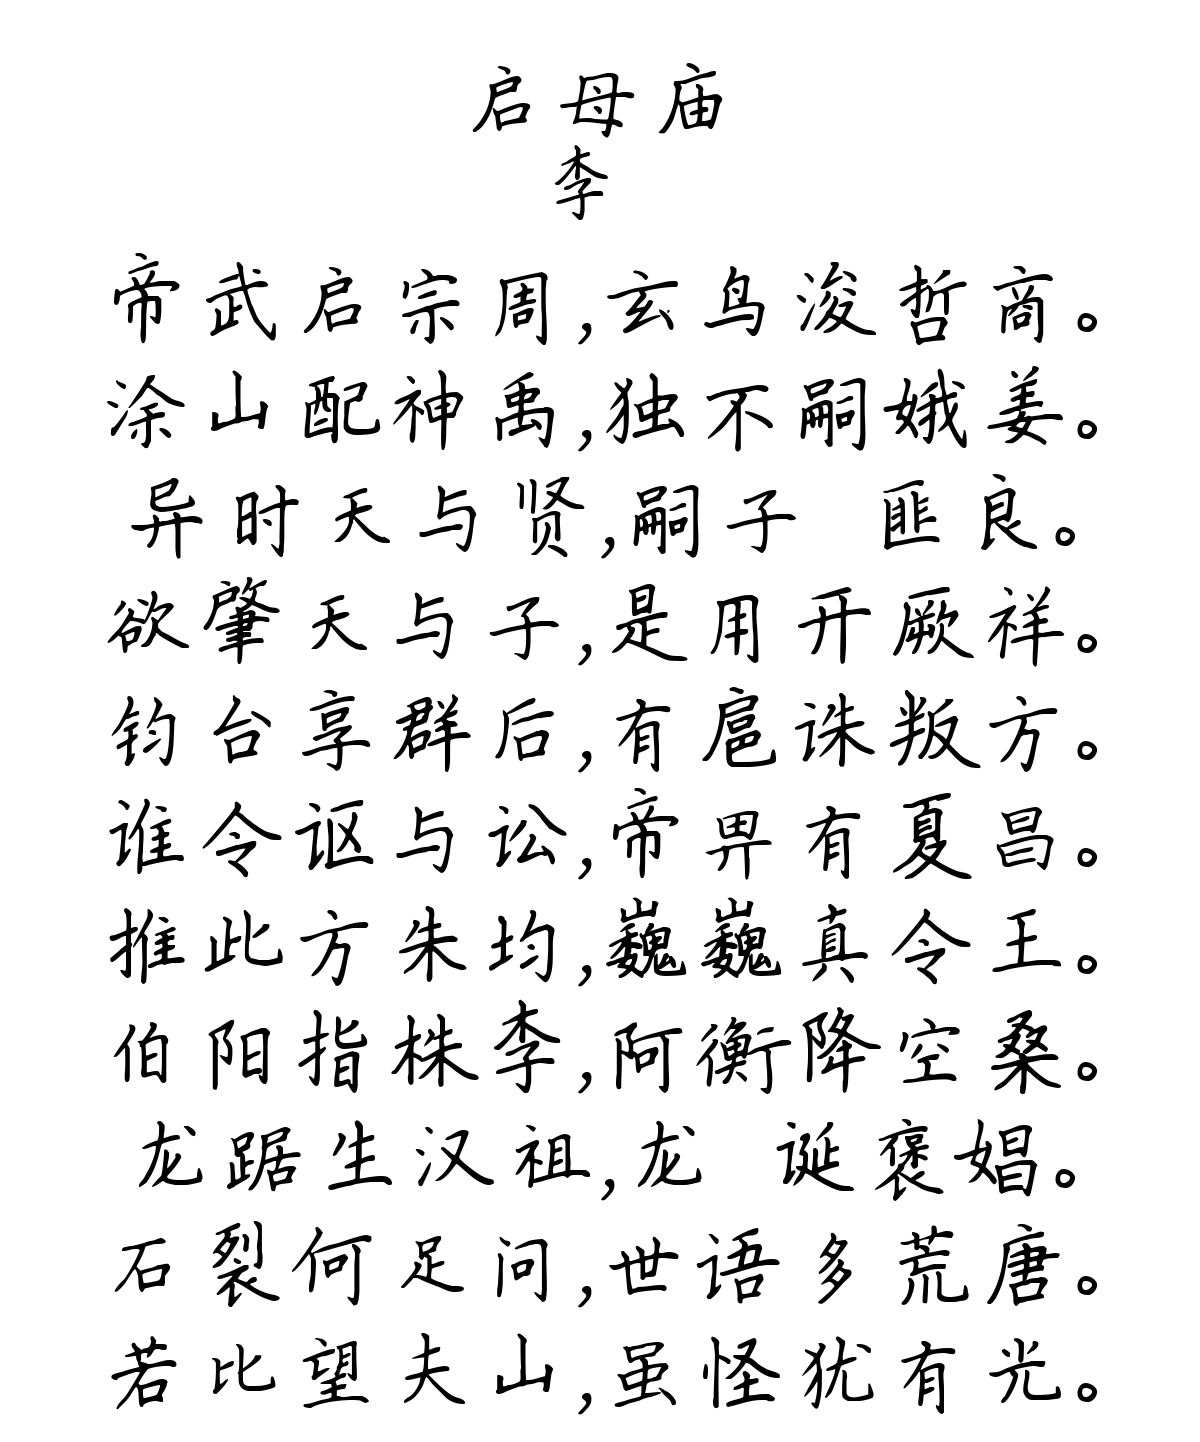 启母庙
李
帝武启宗周,玄鸟浚哲商。
涂山配神禹,独不嗣娥姜。
异时天与贤,嗣子 匪良。
欲肇天与子,是用开厥祥。
钧台享群后,有扈诛叛方。
谁令讴与讼,帝畀有夏昌。
推此方朱均,巍巍真令王。
伯阳指株李,阿衡降空桑。
龙踞生汉祖,龙 诞褒娼。
石裂何足问,世语多荒唐。
若比望夫山,虽怪犹有光。